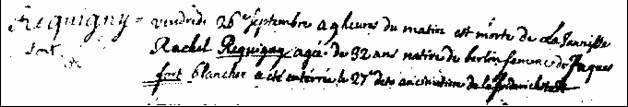 Requigny = vendredi 26e Septembre a 9 heures du matin est morte de La Jaunisse
fort Rachel Requigny agée de 32 ans native de berlin femme de Jaques
fort blancher a été enterrée le 27e dans au cimetiere de la